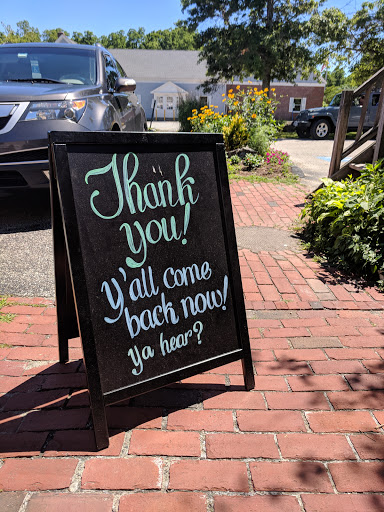 Thank
you!
Y'all come
back now!
ya hear?